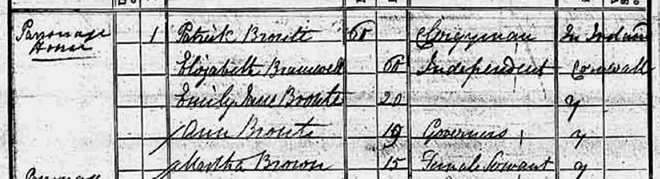 Parsonage 1 Patrick Bronte 60 Clergyman In Ireland
House
Elizabeth Branwell 60 Independent Cornwall
Emily Jane Bronte 20 y
Ann Bronte 19 Governess y
Martha Brown 15 Female Servant y